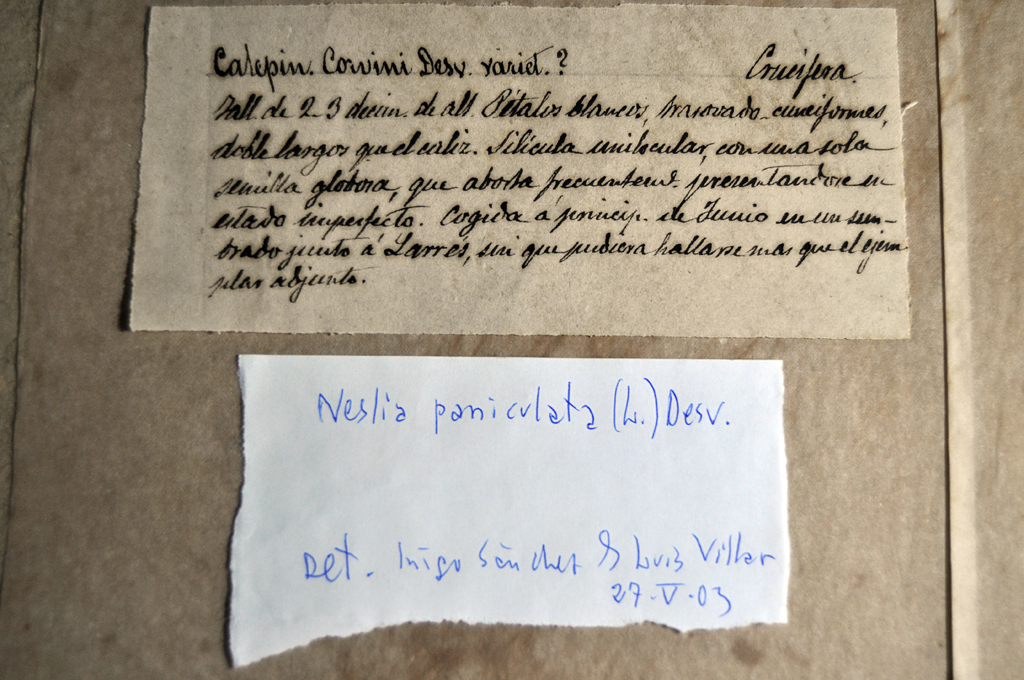 Calepin. Corvini Desv. variet.? Crucifera.
Tall. de 2-3 decim. de alt. Pétalos blancos, trasovado-cuneiformes,
doble largos que el caliz. Silícula unilocular, con una sola
semilla globosa, que aborta frecuentemte. presentandose en
estado imperfecto. Cogida á princip. de Junio en un sem-
brado junto á Larrés, sin que pudiera hallarse mas que el ejem
plar adjunto.
Neslia paniculata (L.) Desv.
Det. Iñigo Sánchez & Luis Villar
27-V-03